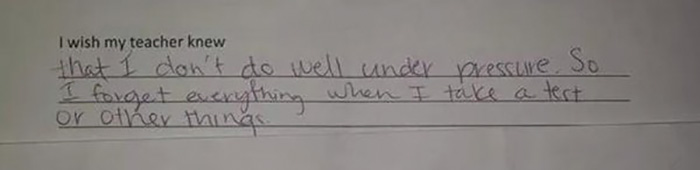 I wish my teacher knew
that I don't do well under pressure. So
I forget everything when I take a test
or other things.